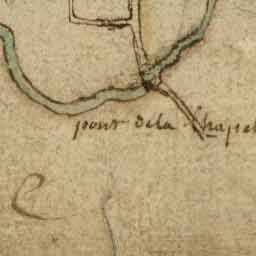 pont de la Chapel
C